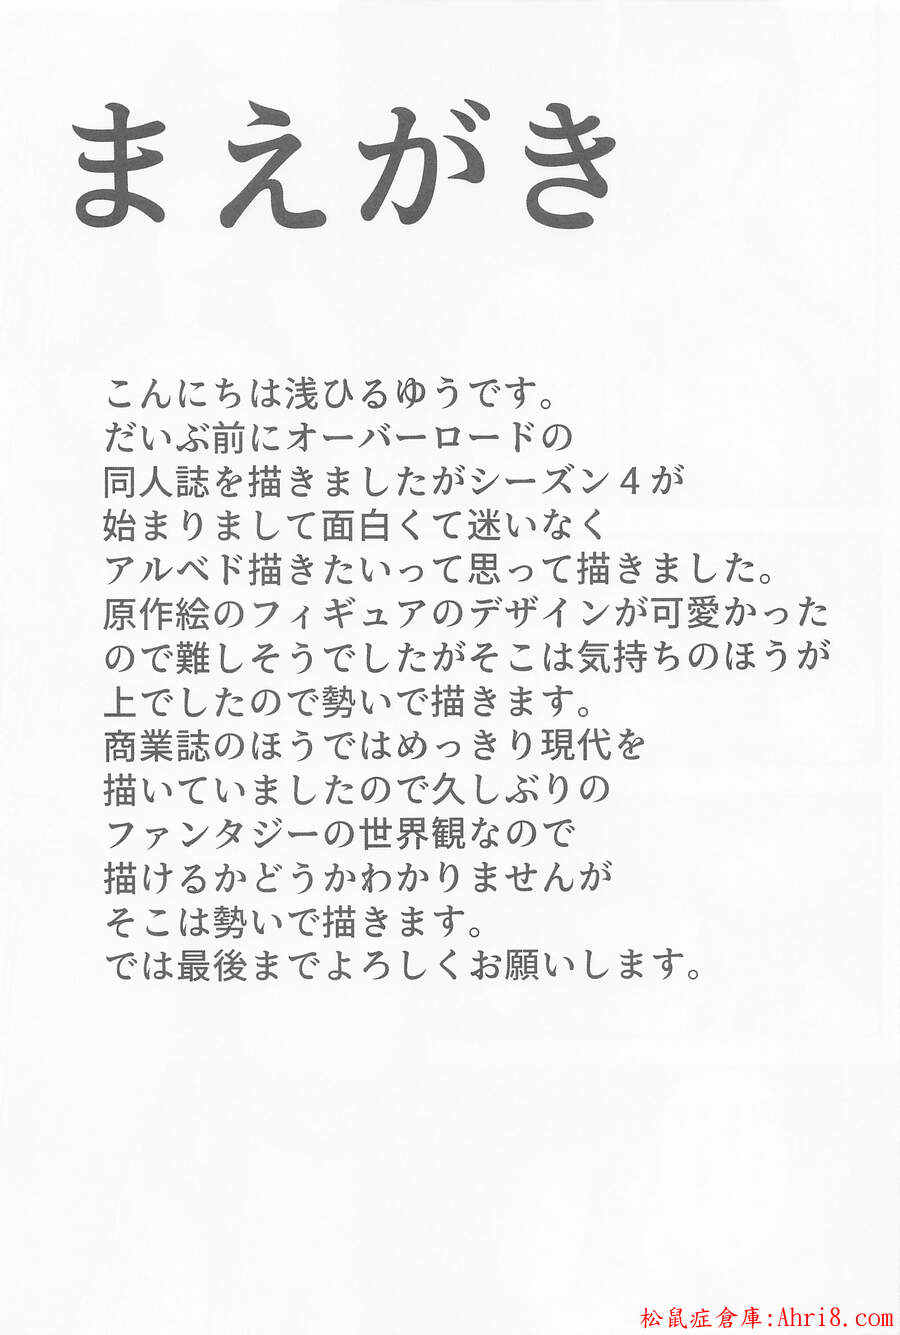 まえがき
こんにちは浅ひるゆうです。
だいぶ前にオーバーロードの
同人誌を描きましたがシーズン４が
始まりまして面白くて迷いなく
アルベド描きたいって思って描きました。
原作絵のフィギュアのデザインが可愛かった
ので難しそうでしたがそこは気持ちのほうが
上でしたので勢いで描きます。
商業誌のほうではめっきり現代を
描いていましたので久しぶりの
ファンタジーの世界観なので
描けるかどうかわかりませんが
そこは勢いで描きます。
では最後までよろしくお願いします。
松鼠症倉庫:Ahri8.com